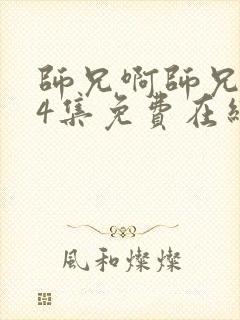 師兄啊師兄
4集免費在
風和燦燦